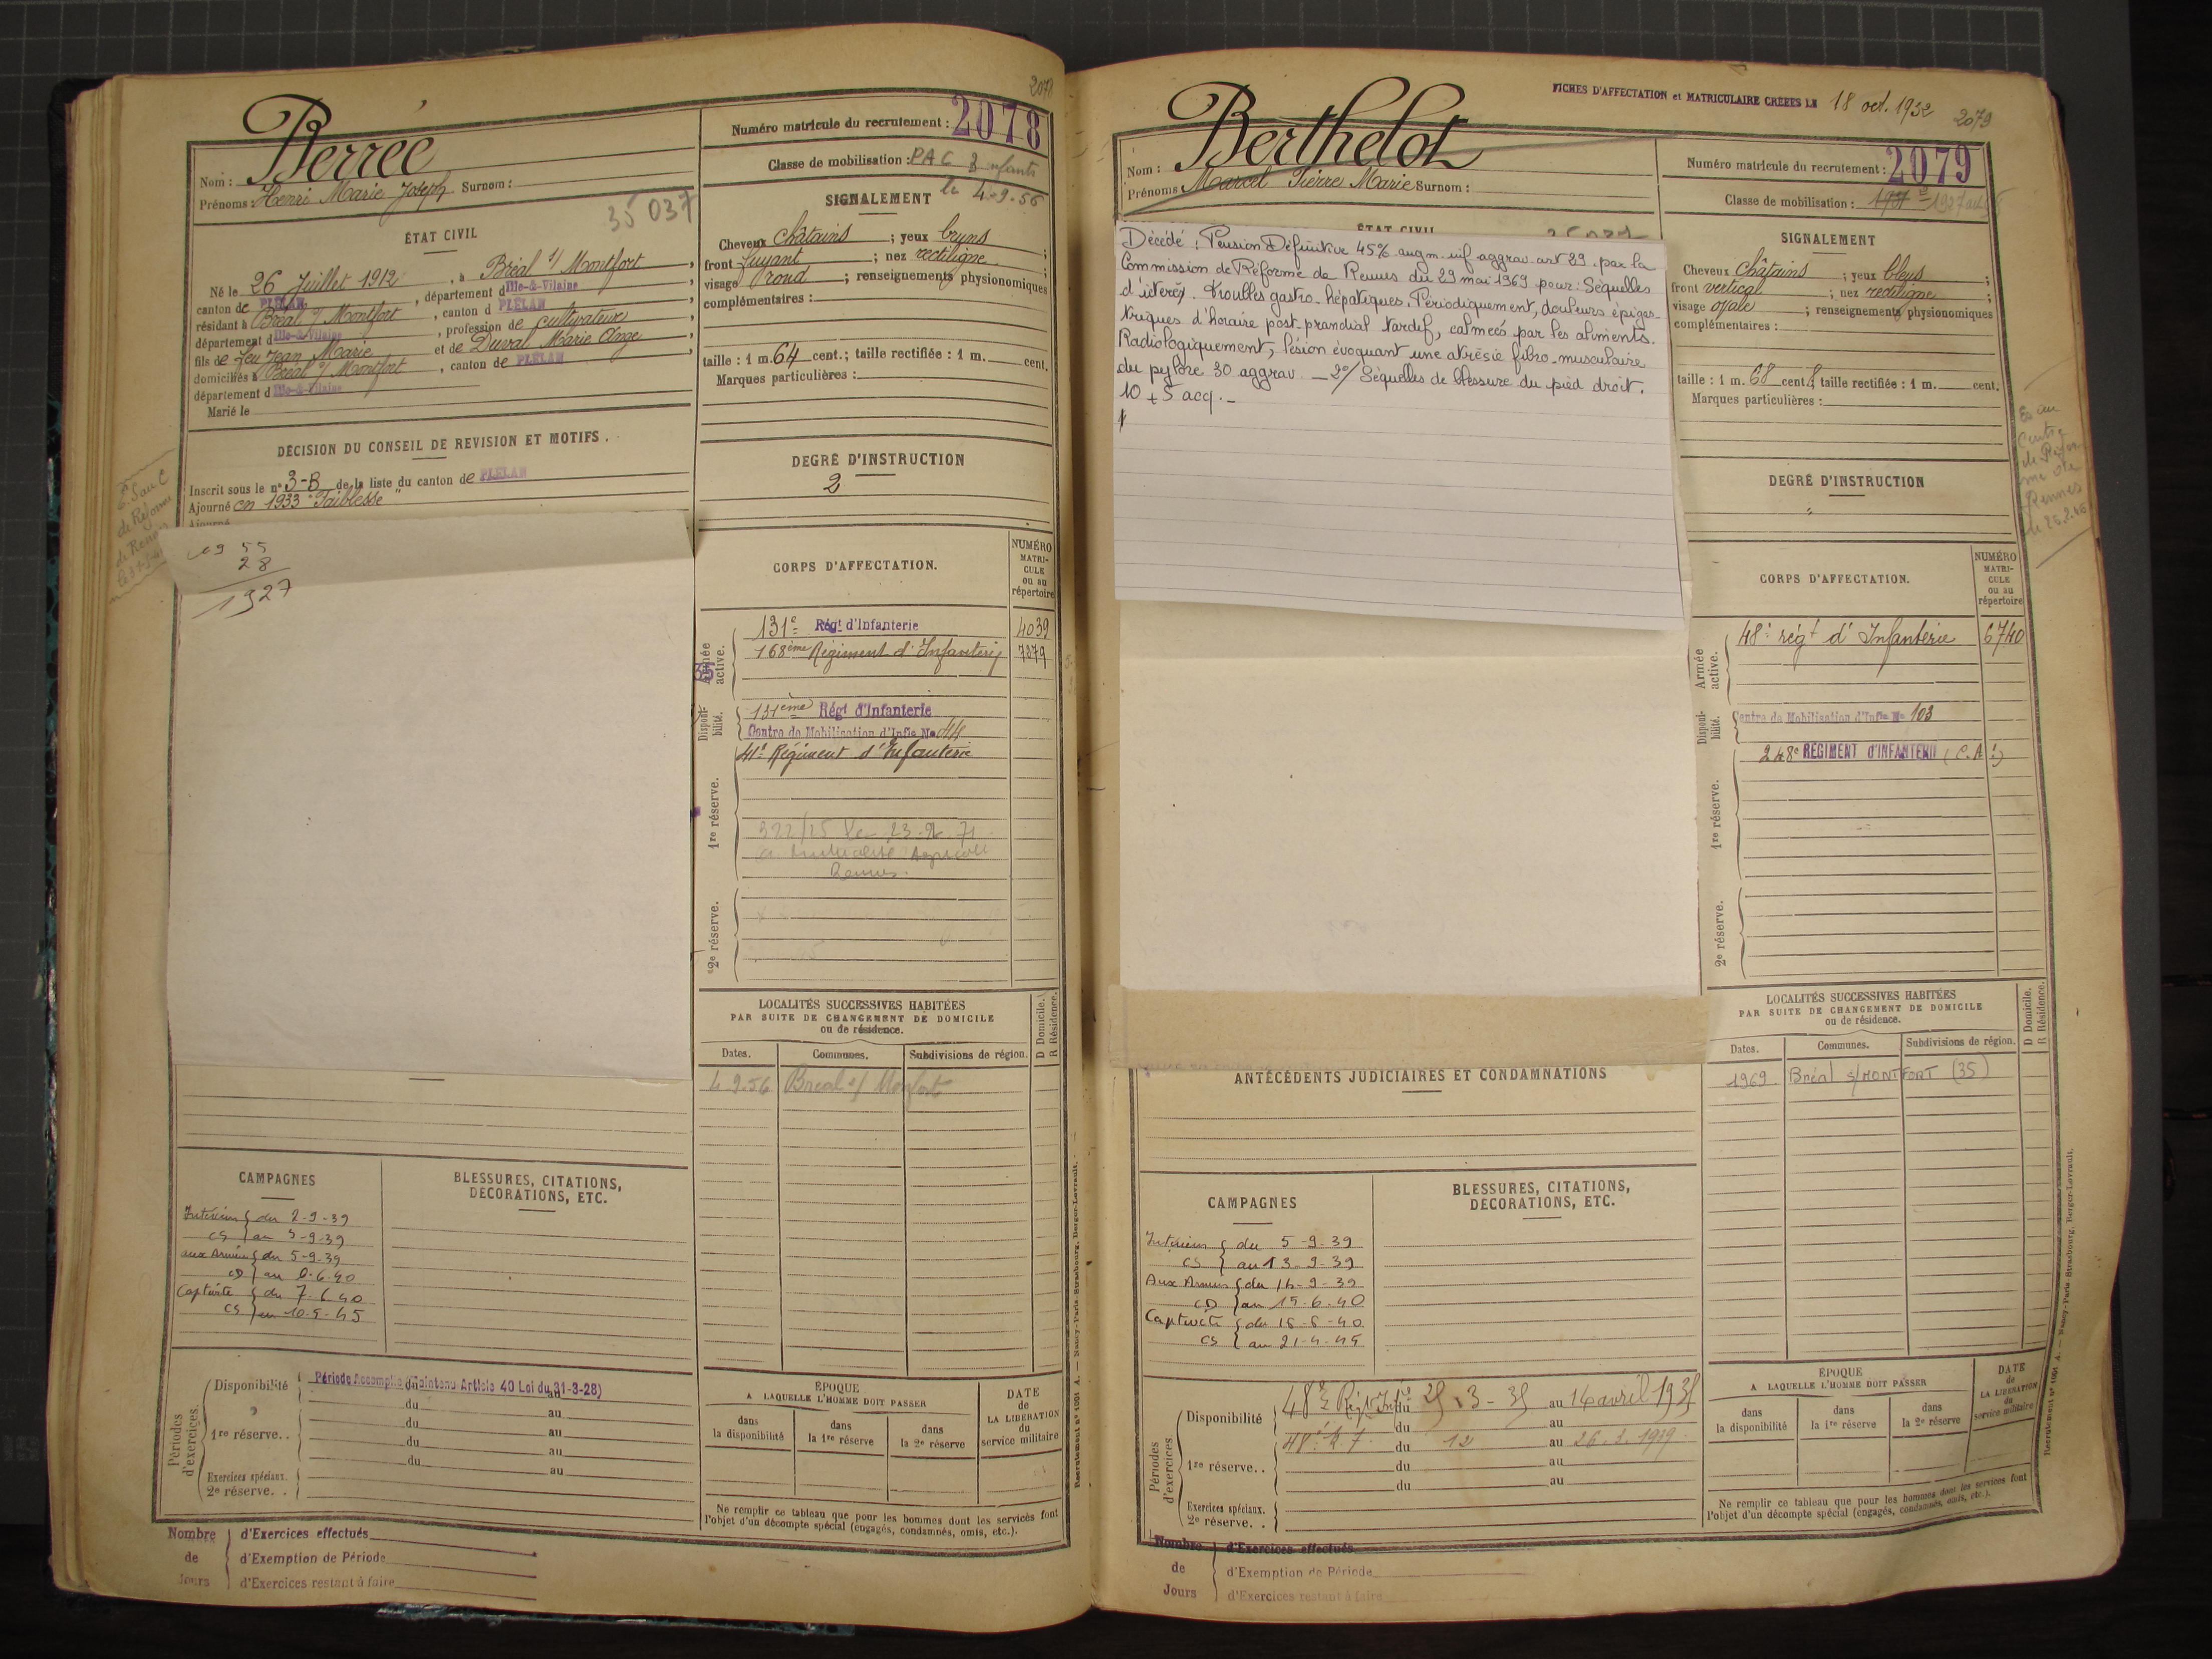 2078
Berrée
Nom :
Prénoms : Henri Marie Joseph Surnom :
35037
ÉTAT CIVIL
Né le 26 Juillet 1912, à Bréal s/ Montfort,
canton de PLÉLAN, département d Ille-&-Vilaine,
résidant à Bréal s/ Montfort, canton d PLÉLAN,
département d Ille-&-Vilaine, profession de cultivateur,
fils de feu Jean Marie et de Duval Marie Ange,
domiciliés à Bréal s/ Montfort, canton de PLÉLAN
département d Ille-&-Vilaine
Marié le
DÉCISION DU CONSEIL DE REVISION ET MOTIFS.
Inscrit sous le n° 3-B de la liste du canton de PLÉLAN
Ajourné en 1933 "Faiblesse"
Ajourné
de Réforme
de Rennes
1955
28
1927
CAMPAGNES
Intérieur du 2-9-39
CS au
aux Armées du 5-9-39
CD au 6-6-40
Captivité du 7-6-40
CS au 10-5-45
BLESSURES, CITATIONS,
DÉCORATIONS, ETC.
Périodes d'exercices.
Disponibilité Période Accomplie (Maintenu Article 40 Loi du 31-3-28)
du au
1re réserve.. du au
du au
du au
Exercices spéciaux.
2e réserve. .
Nombre de Jours
d'Exercices effectués
d'Exemption de Période
d'Exercices restant à faire
Numéro matricule du recrutement : 2078
Classe de mobilisation : PAC 3 enfants
le 4-9-56
SIGNALEMENT
Cheveux châtains ; yeux bruns ;
front fuyant ; nez rectiligne ;
visage rond ; renseignements physionomiques
complémentaires :
taille : 1 m. 64 cent.; taille rectifiée : 1 m. cent.
Marques particulières :
DEGRÉ D'INSTRUCTION
2
CORPS D'AFFECTATION.
NUMÉRO
MATRI-
CULE
ou au
répertoire
Armée active.
131e Régt d'Infanterie 4039
168ème Régiment d'Infanterie 7279
Disponibilité.
131ème Régt d'Infanterie
Centre de Mobilisation d'Infie No 44
41e Régiment d'Infanterie
1re réserve.
Rennes.
2e réserve.
LOCALITÉS SUCCESSIVES HABITÉES
PAR SUITE DE CHANGEMENT DE DOMICILE
ou de résidence.
D Domicile.
R Résidence.
Dates. Communes. Subdivisions de région.
4.9.56 Bréal s/ Monfort
ÉPOQUE
A LAQUELLE L'HOMME DOIT PASSER
dans la disponibilité
dans la 1re réserve
dans la 2e réserve
DATE
de
LA LIBÉRATION
du
service militaire
Ne remplir ce tableau que pour les hommes dont les services font
l'objet d'un décompte spécial (engagés, condamnés, omis, etc.).
Recrutement n° 1001 A. — Nancy-Paris-Strasbourg, Berger-Levrault.
FICHES D'AFFECTATION et MATRICULAIRE CRÉÉES LE 18 oct. 1952
2079
Berthelot
Nom :
Prénoms Marcel Pierre Marie Surnom :
ÉTAT CIVIL
Décédé : Pension Définitive 45% augm. inf. aggrav. art 29. par la
Commission de Réforme de Rennes du 29 mai 1969 pour : Séquelles
d'ictères. Troubles gastro-hépatiques. Périodiquement, douleurs épigas-
triques d'horaire post-prandial tardif, calmées par les aliments.
Radiologiquement, lésion évoquant une atrésie fibro-musculaire
du pylore 30 aggrav. — 2°/ Séquelles de blessure du pied droit.
10 + 5 acq. -
ANTÉCÉDENTS JUDICIAIRES ET CONDAMNATIONS
CAMPAGNES
Intérieur du 5-9-39
CS au 13-9-39
Aux Armées du 14-9-39
CD au 15-6-40
Captivité du 16-6-40
CS au 21-4-45
BLESSURES, CITATIONS,
DÉCORATIONS, ETC.
Périodes d'exercices.
Disponibilité 48e Régt Infie du au 14 avril 193
du 12 au 26.3.1939
1re réserve.. du au
du au
Exercices spéciaux.
2e réserve. .
Nombre de Jours
d'Exercices effectués
d'Exemption de Période
d'Exercices restant à faire
Numéro matricule du recrutement : 2079
Classe de mobilisation :
SIGNALEMENT
Cheveux châtains ; yeux bleus ;
front vertical ; nez rectiligne ;
visage ovale ; renseignements physionomiques
complémentaires :
taille : 1 m. 68 cent.; taille rectifiée : 1 m. cent.
Marques particulières :
DEGRÉ D'INSTRUCTION
Centre
de Réfor-
me de
Rennes
CORPS D'AFFECTATION.
NUMÉRO
MATRI-
CULE
ou au
répertoire
Armée active.
48e régt d'Infanterie 6740
Disponibilité.
Centre de Mobilisation d'Infie No 103
248e RÉGIMENT D'INFANTERIE (C.A!)
1re réserve.
2e réserve.
LOCALITÉS SUCCESSIVES HABITÉES
PAR SUITE DE CHANGEMENT DE DOMICILE
ou de résidence.
D Domicile.
R Résidence.
Dates. Communes. Subdivisions de région.
1969. Bréal s/MONTFORT (35)
ÉPOQUE
A LAQUELLE L'HOMME DOIT PASSER
dans la disponibilité
dans la 1re réserve
dans la 2e réserve
DATE
de
LA LIBÉRATION
du
service militaire
Ne remplir ce tableau que pour les hommes dont les services font
l'objet d'un décompte spécial (engagés, condamnés, omis, etc.).
Recrutement n° 1001 A. — Nancy-Paris-Strasbourg, Berger-Levrault.